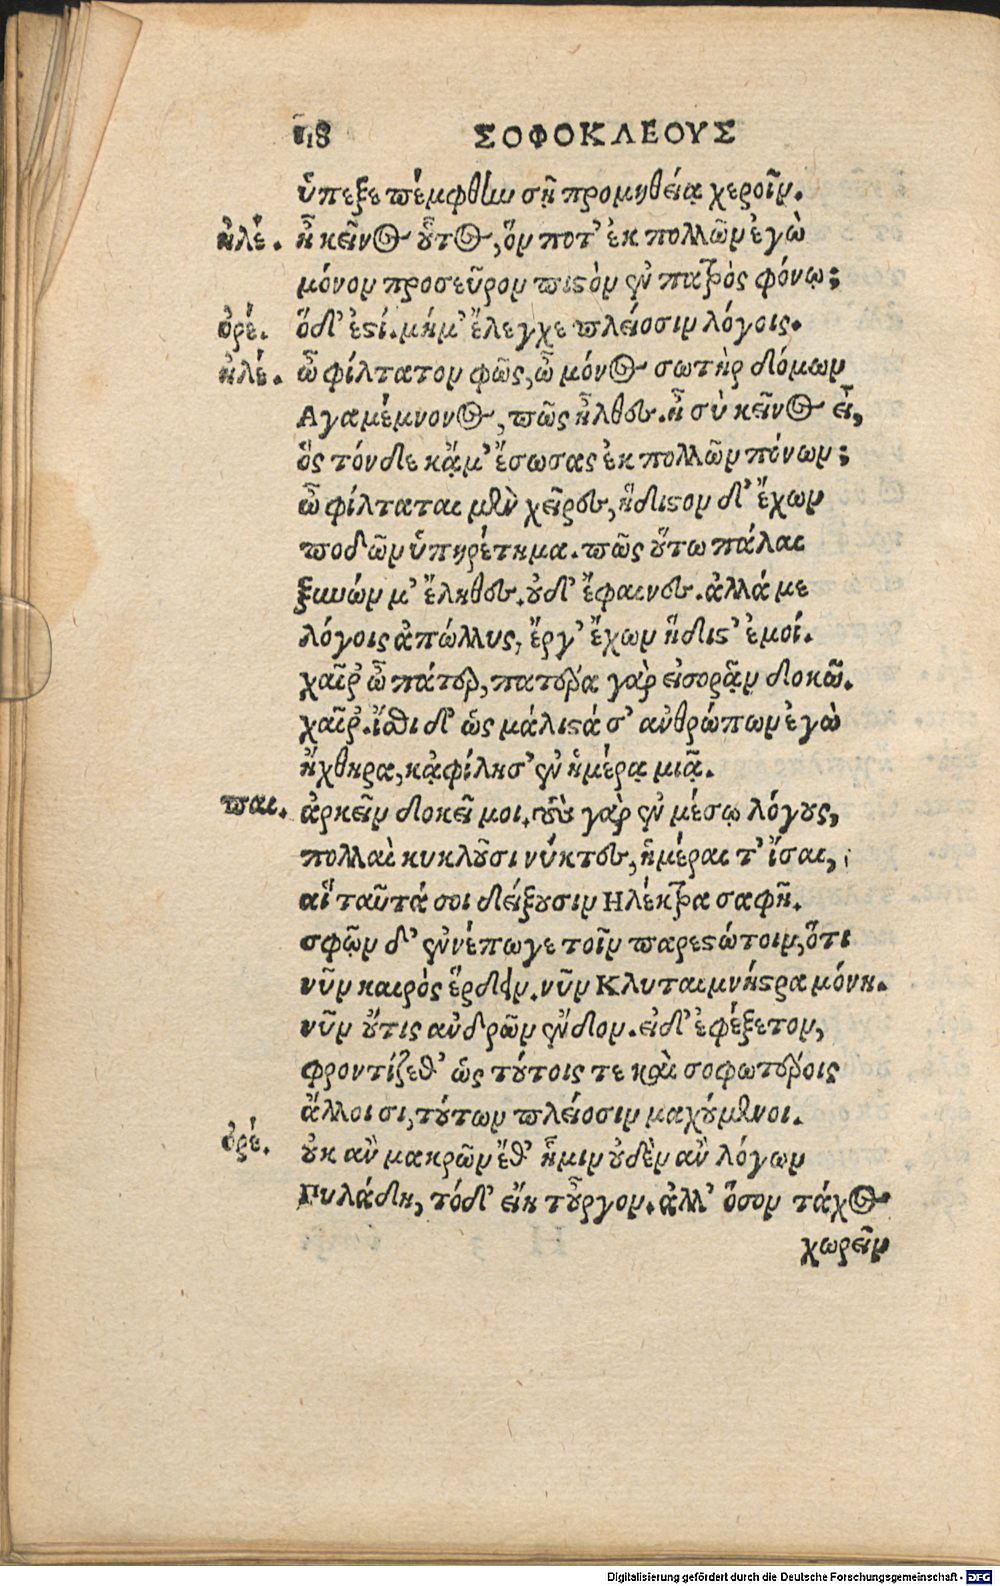 118 ΣΟΦΟΚΛΕΟΥΣ
ὑπεξεπέμφθην σῇ προμηθείᾳ χεροῖν.
ἠλέ. ἦ κεῖνος οὗτος, ὅν ποτ' ἐκ πολλῶν ἐγὼ
μόνον προσεῦρον πιστὸν ἐν πατρὸς φόνῳ;
ὀρέ. ὅδ' ἐστί. μή μ' ἔλεγχε πλείοσιν λόγοις.
ἠλέ. ὦ φίλτατον φῶς, ὦ μόνος σωτὴρ δόμων
Αγαμέμνονος, πῶς ἦλθες. ἦ σὺ κεῖνος εἶ,
ὃς τόνδε κᾄμ' ἔσωσας ἐκ πολλῶν πόνων;
ὦ φίλταται μὲν χεῖρες, ἥδιστον δ' ἔχων
ποδῶν ὑπηρέτημα. πῶς οὕτω πάλαι
ξυνών μ' ἔληθες. οὐδ' ἔφαινες. ἀλλά με
λόγοις ἀπώλλυς, ἔργ' ἔχων ἥδιστ' ἐμοί.
χαῖρ' ὦ πάτερ, πατέρα γὰρ εἰσορᾷν δοκῶ.
χαῖρ'. ἴσθι δ' ὡς μάλιστά σ' ἀνθρώπων ἐγὼ
ἤχθηρα, κᾀφίλησ' ἐν ἡμέρᾳ μιᾷ.
παι. ἀρκεῖν δοκεῖ μοι. τοὺς γὰρ ἐν μέσῳ λόγους,
πολλαὶ κυκλοῦσι νύκτες, ἡμέραι τ' ἴσαι,
αἳ ταῦτά σοι δείξουσιν Ηλέκτρα σαφῆ.
σφῷν δ' ἐννέπω γε τοῖν παρεστώτοιν, ὅτι
νῦν καιρὸς ἔρδειν. νῦν Κλυταιμνήστρα μόνη.
νῦν οὔτις ἀνδρῶν ἔνδον. εἰ δ' ἐφέξετον,
φροντίζεθ' ὡς τούτοις τε καὶ σοφωτέροις
ἄλλοισι, τούτων πλείοσιν μαχούμενοι.
ὀρέ. οὐκ ἂν μακρῶν ἔθ' ἥμιν οὐδὲν ἂν λόγων
Πυλάδη, τόδ' εἴη τοὖργον. ἀλλ' ὅσον τάχος
χωρεῖν
Digitalisierung gefördert durch die Deutsche Forschungsgemeinschaft - DFG